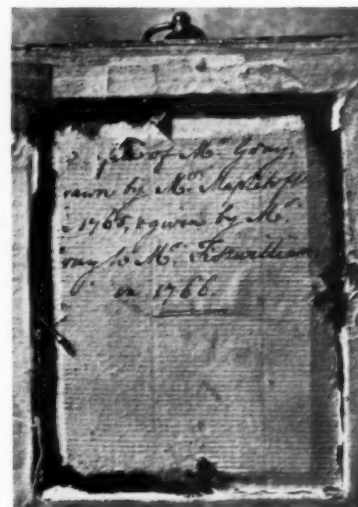 of Mr. Gray,
rawn by Mr. Mapletoft
1765, & given by Mr.
ray to Mr. Fitzwilliam
in 1766.